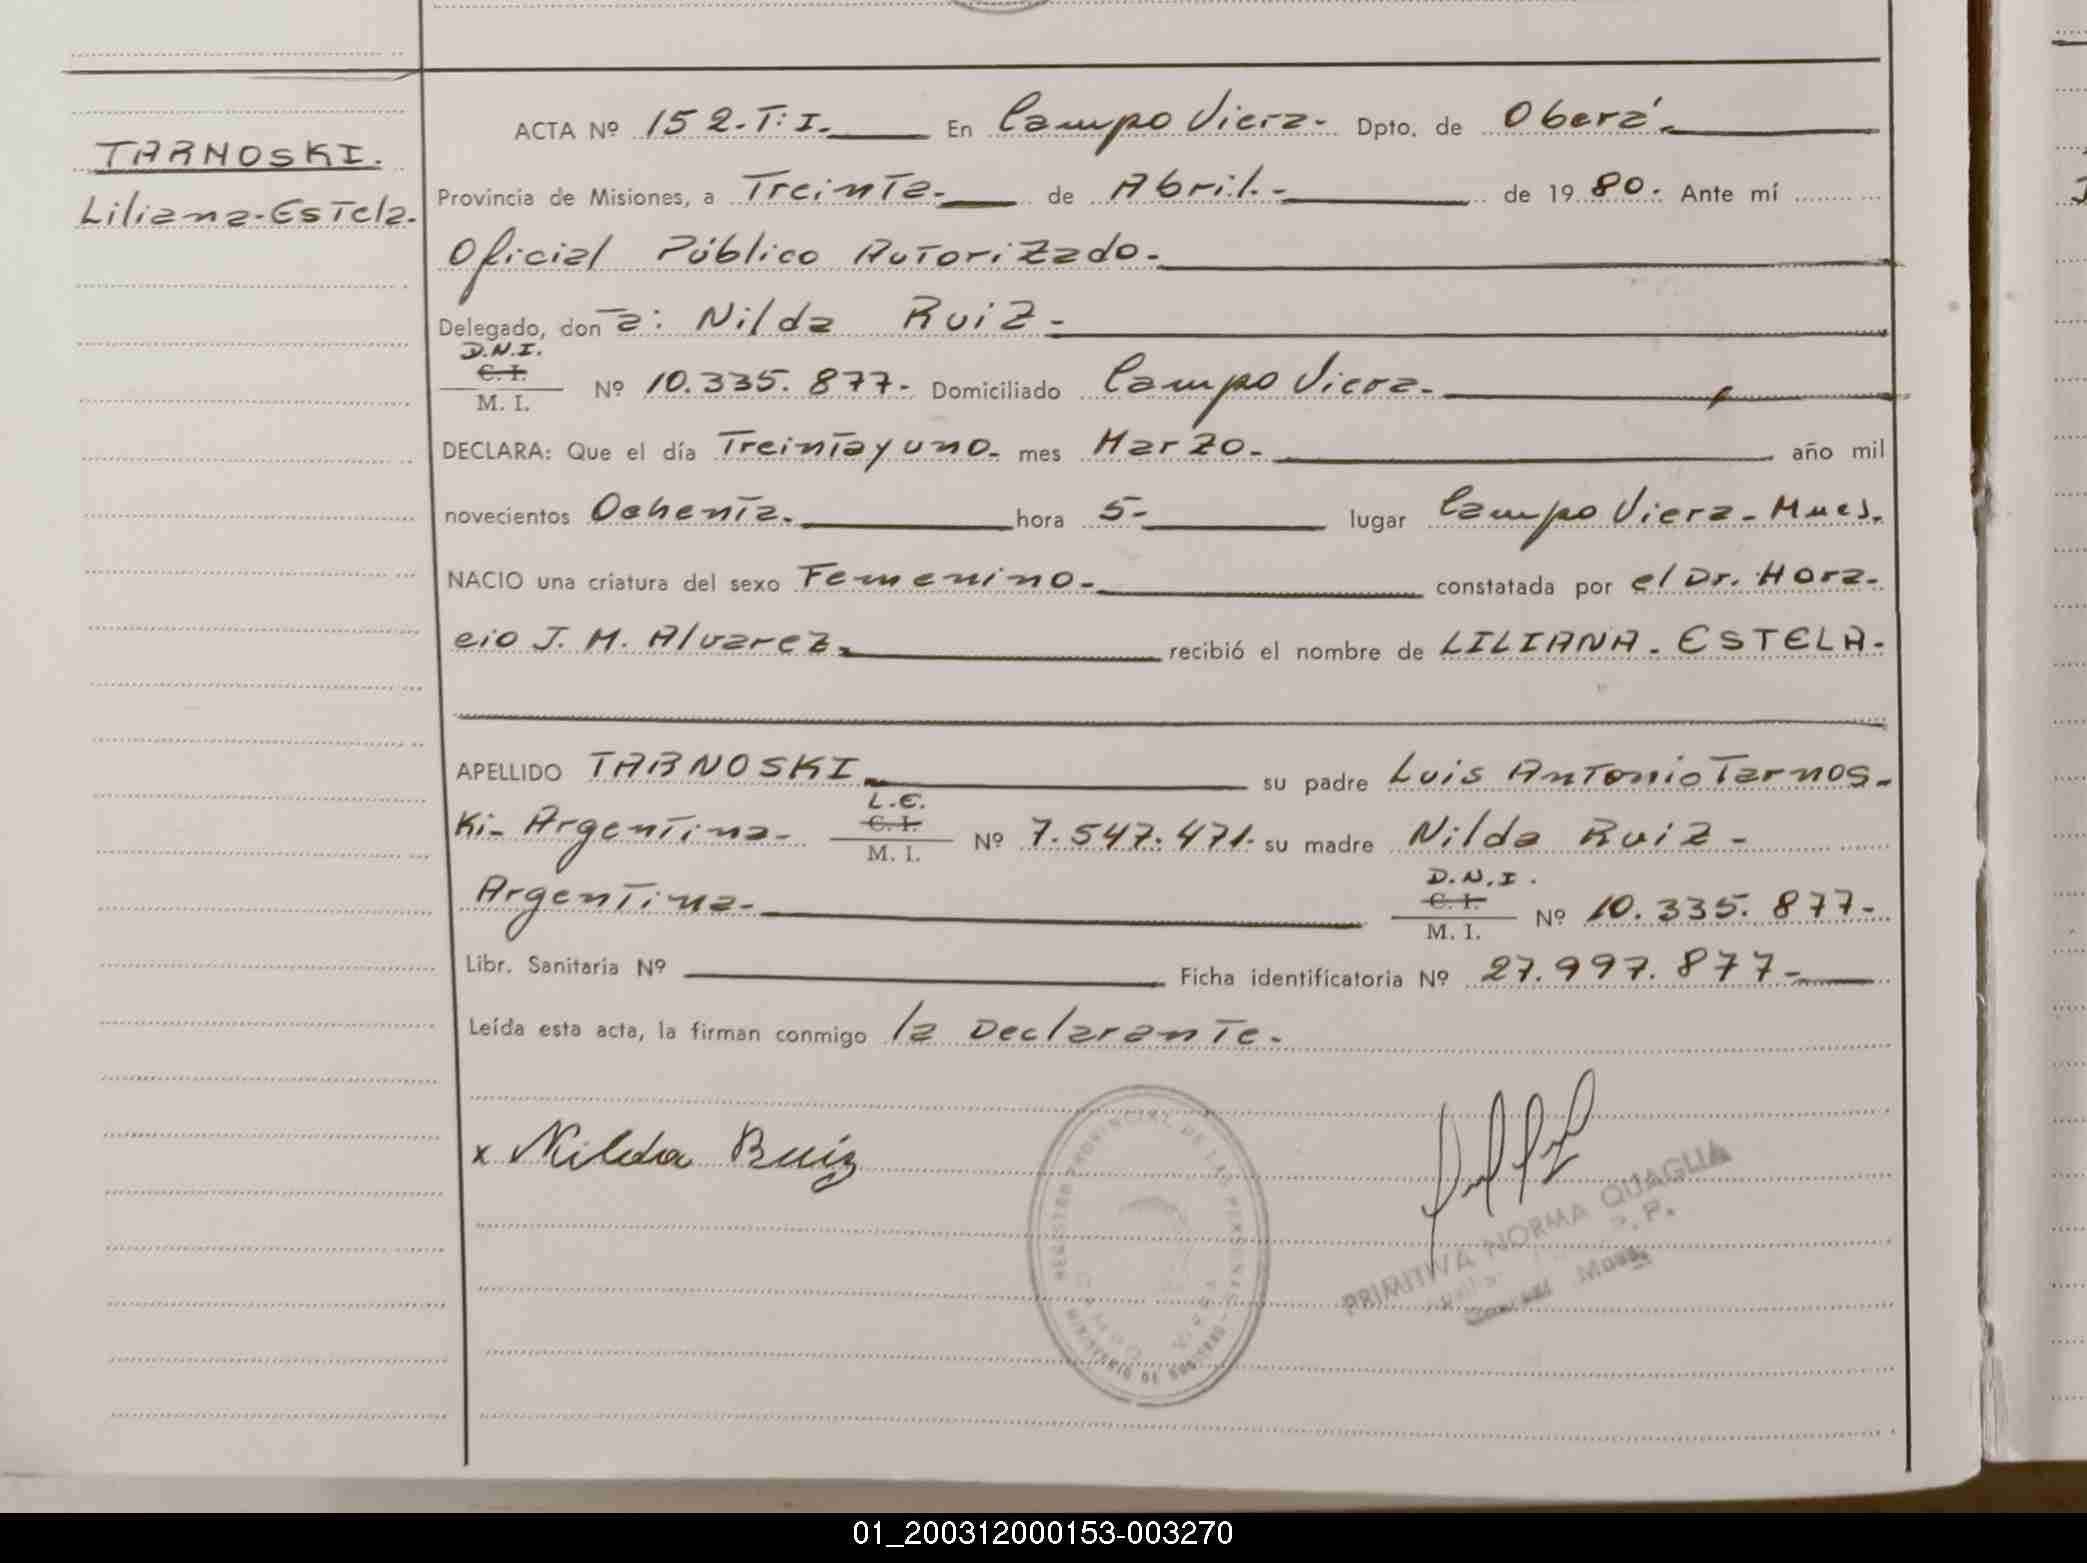 TARNOSKI.
Liliana-Estela.
ACTA Nº 152-T:I. En Campo Viera- Dpto. de Oberá.
Provincia de Misiones, a Treinta- de Abril.- de 19 80. Ante mí
Oficial Público Autorizado.
Delegado, don a: Nilda Ruiz-
D.N.I.
C. I.
M. I. Nº 10.335.877- Domiciliado Campo Viera-
DECLARA: Que el día Treinta y uno- mes Marzo- año mil
novecientos Ochenta. hora 5- lugar Campo Viera- Mnes.
NACIO una criatura del sexo Femenino- constatada por el Dr. Hora-
cio J. M. Alvarez. recibió el nombre de LILIANA. ESTELA.
APELLIDO TARNOSKI su padre Luis Antonio Tarnos-
L.E.
ki- Argentina- C. I. Nº 7.547.471. su madre Nilda Ruiz-
M. I.
D.N.I.
Argentina- C. I. Nº 10.335.877-
M. I.
Libr. Sanitaria Nº Ficha identificatoria Nº 27.997.877-
Leída esta acta, la firman conmigo la Declarante.
x Nilda Ruiz
REGISTRO PROVINCIAL DE LAS PERSONAS
MINISTERIO DE GOBIERNO
CAMPO VIERA
PRIMITIVA NORMA QUAGLIA
01_200312000153-003270